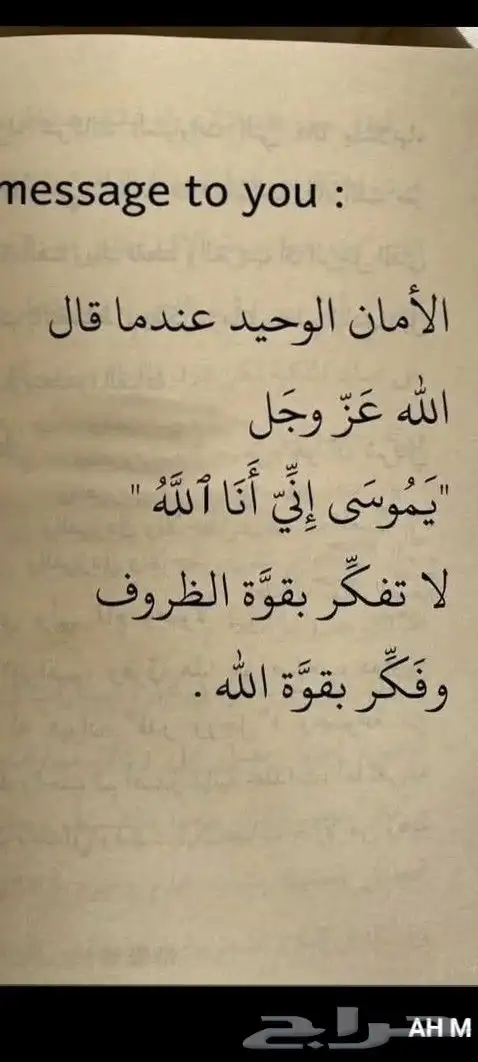 message to you :
الأمان الوحيد عندما قال
الله عَزّ وجَل
"يَمُوسَى إِنِّيّ أَنَا ٱللَّهُ "
لا تفكِّر بقوَّة الظروف
وفَكِّر بقوَّة الله .
حراج
AH M